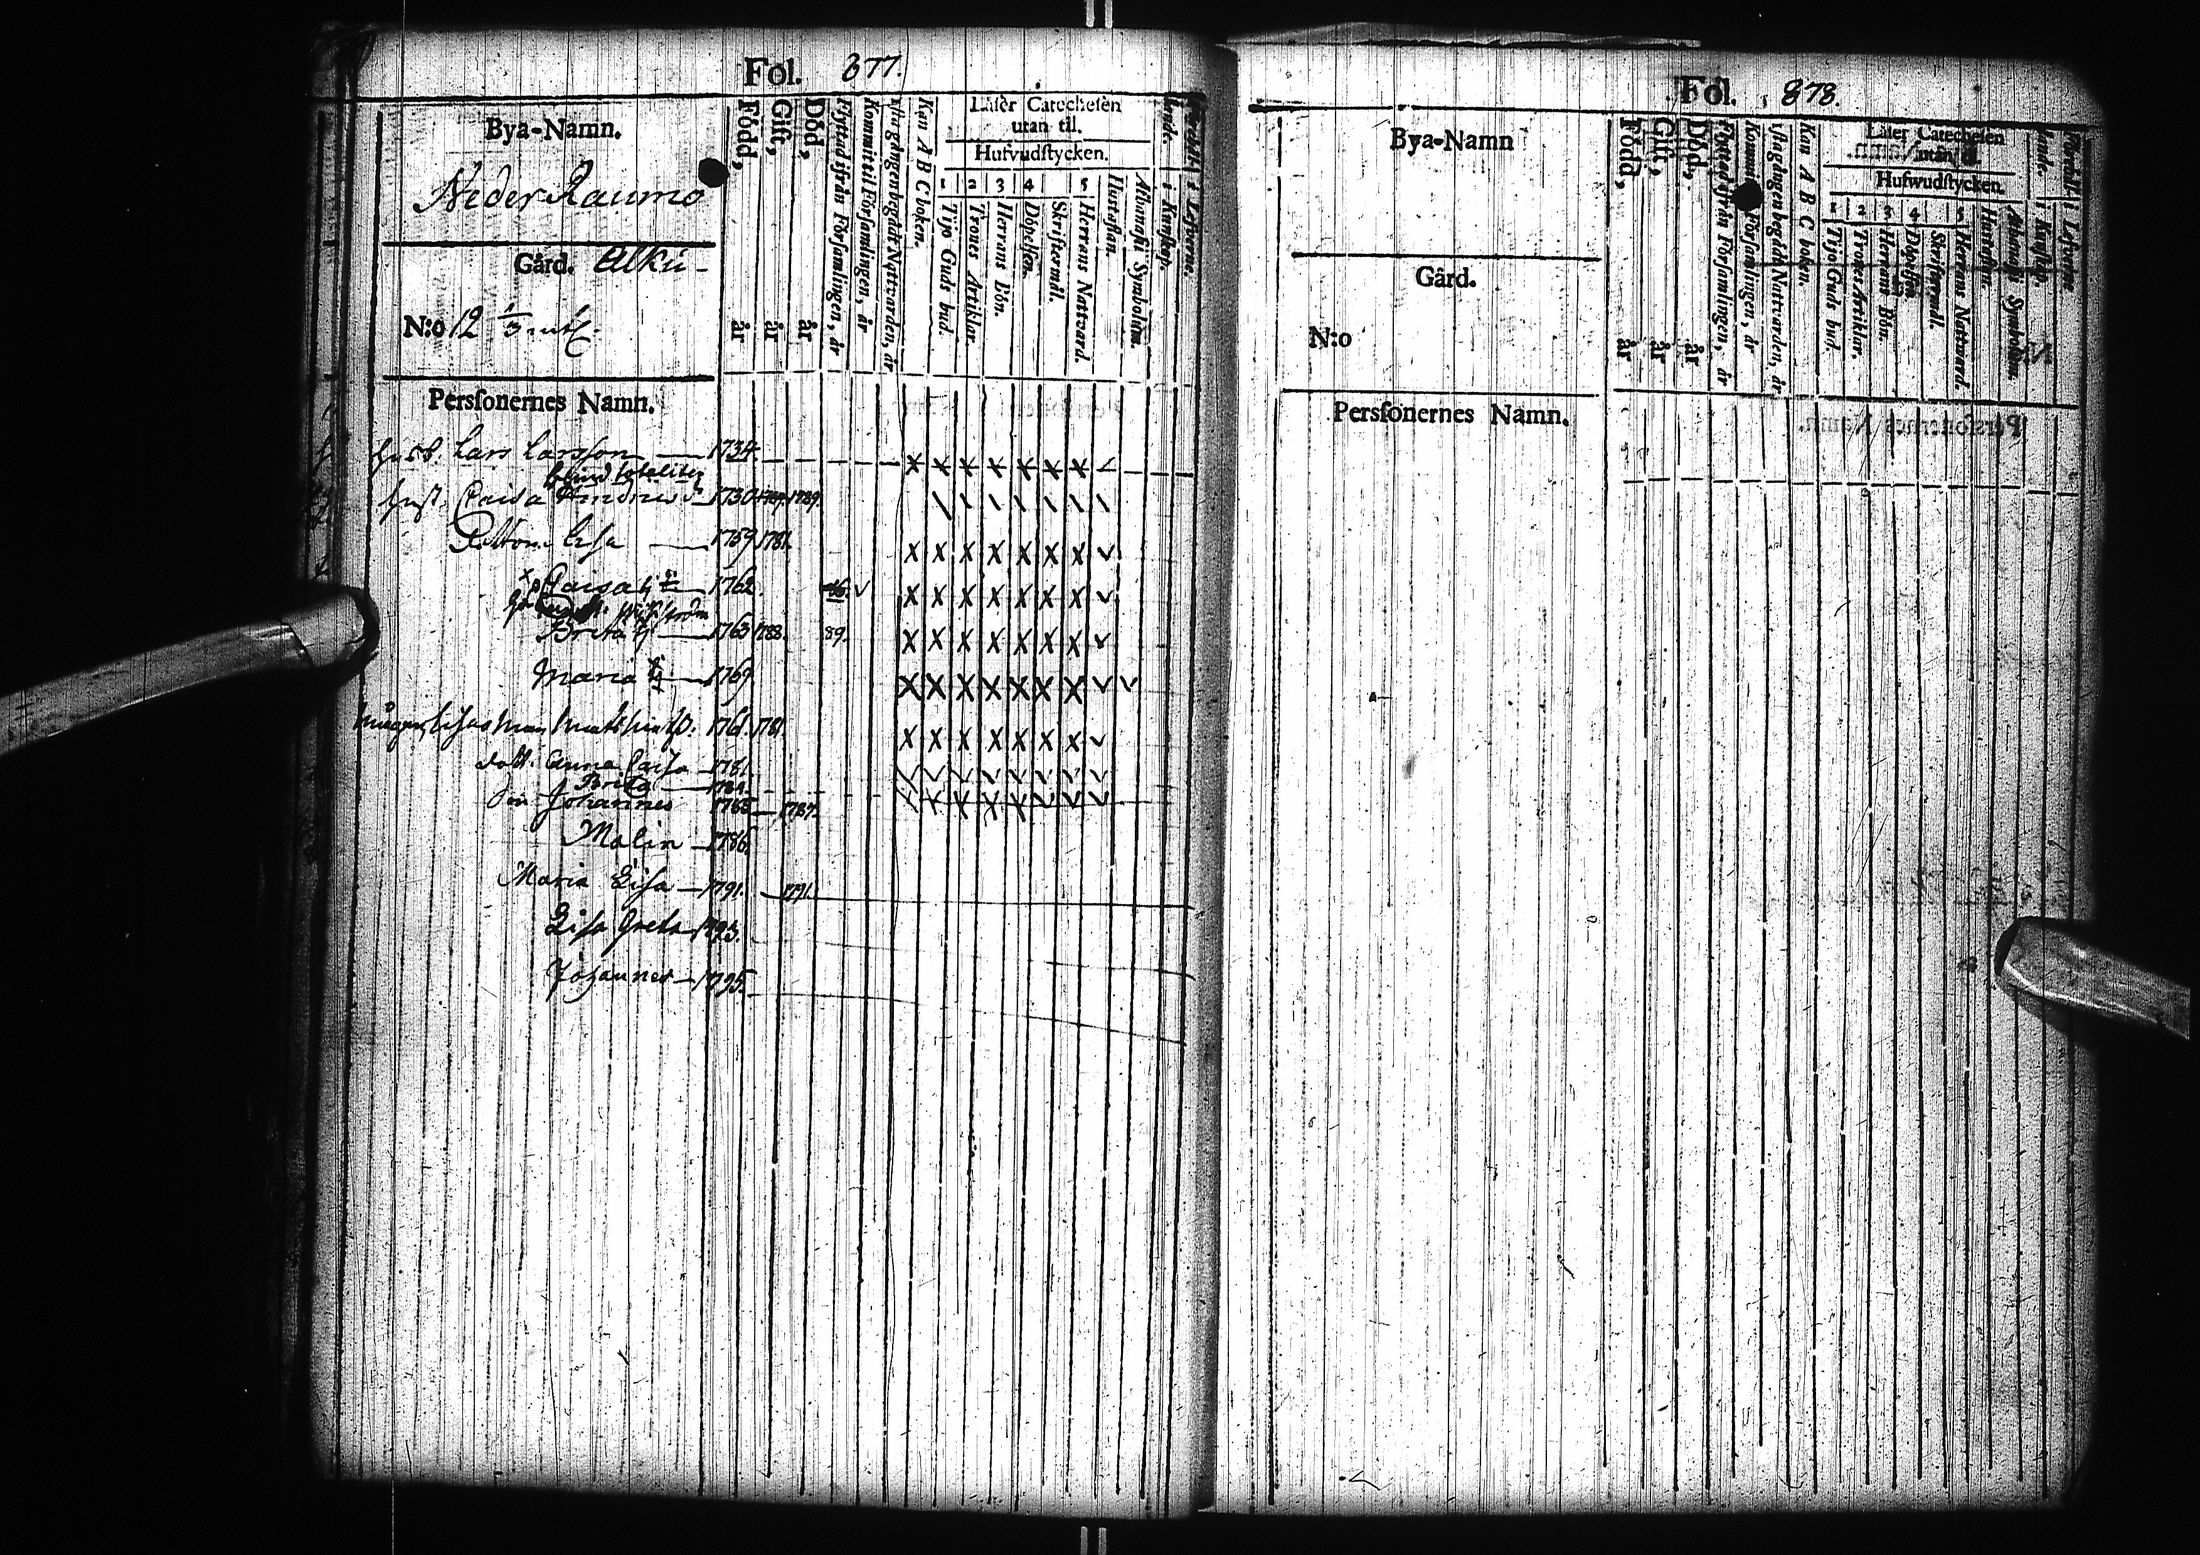 Fol. 877.
Bya-Namn.
Neder Raumo
Gård. Alku-
N:o 12 1/3 mtl.
Född, år
Gift, år
Död, år
Flyttad ifrån Församlingen, år
Kommit til Församlingen, år
sta gången begådt Nattvarden, år
Kan A B C boken.
Läser Catechesen
utan til.
Hufvudstycken.
1 2 3 4 5
Tijo Guds bud.
Trones Artiklar.
Herrans Bön.
Döpelsen.
Skriftermål.
Herrans Nattvard.
Hustaflan.
Athanasii Symbolum.
i Kunskap.
i Lefverne.
Persſonernes Namn.
husb. Lars Larsson 1734.
blind totaliter
hust. Caisa 1730 1789.
Dottom Lisa 1759 1781.
x Caisa 1762.
Brita 1763 1788. 89.
Maria 1769
Mågen, Lisas man Mats 1761. 1781.
dott. Anna Caisa 1781.
Brita 1784.
Son Johannes 1785 1787.
Malin 1786.
Maria Lisa 1791. 1791.
Lisa Greta 1793.
Johannes 1795.
Fol. 878.
Bya-Namn
Gård.
N:o
Född, år
Gift, år
Död, år
Flyttad ifrån Församlingen, år
Kommit Församlingen, år
sta gången begådt Nattvarden, år
Kan A B C boken.
Läser Catechesen
utan til.
Hufwudstycken.
1 2 3 4 5
Tijo Guds bud.
Trones Artiklar.
Herrans Bön.
Döpelsen
Skriftermål.
Herrans Natward.
Hustaflan.
Athanasii Symbolum.
i Kunskap.
i Lefverne.
Persſonernes Namn.